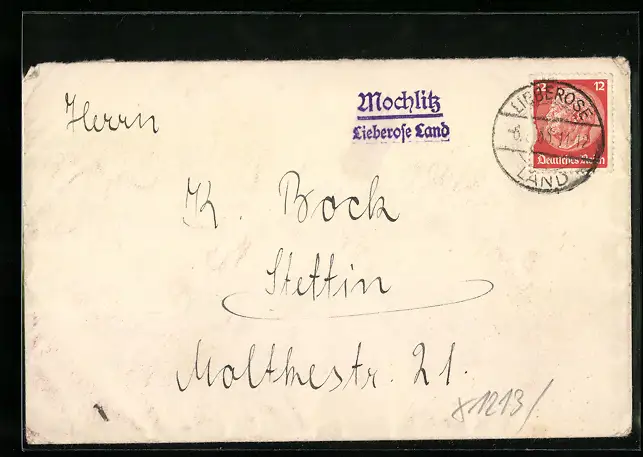 Herrn
Mochlitz
Lieberose Land
12 12
LIEBEROSE
Deutsches Reich
LAND
K. Bock
Stettin
Moltkestr. 21.
x1213/